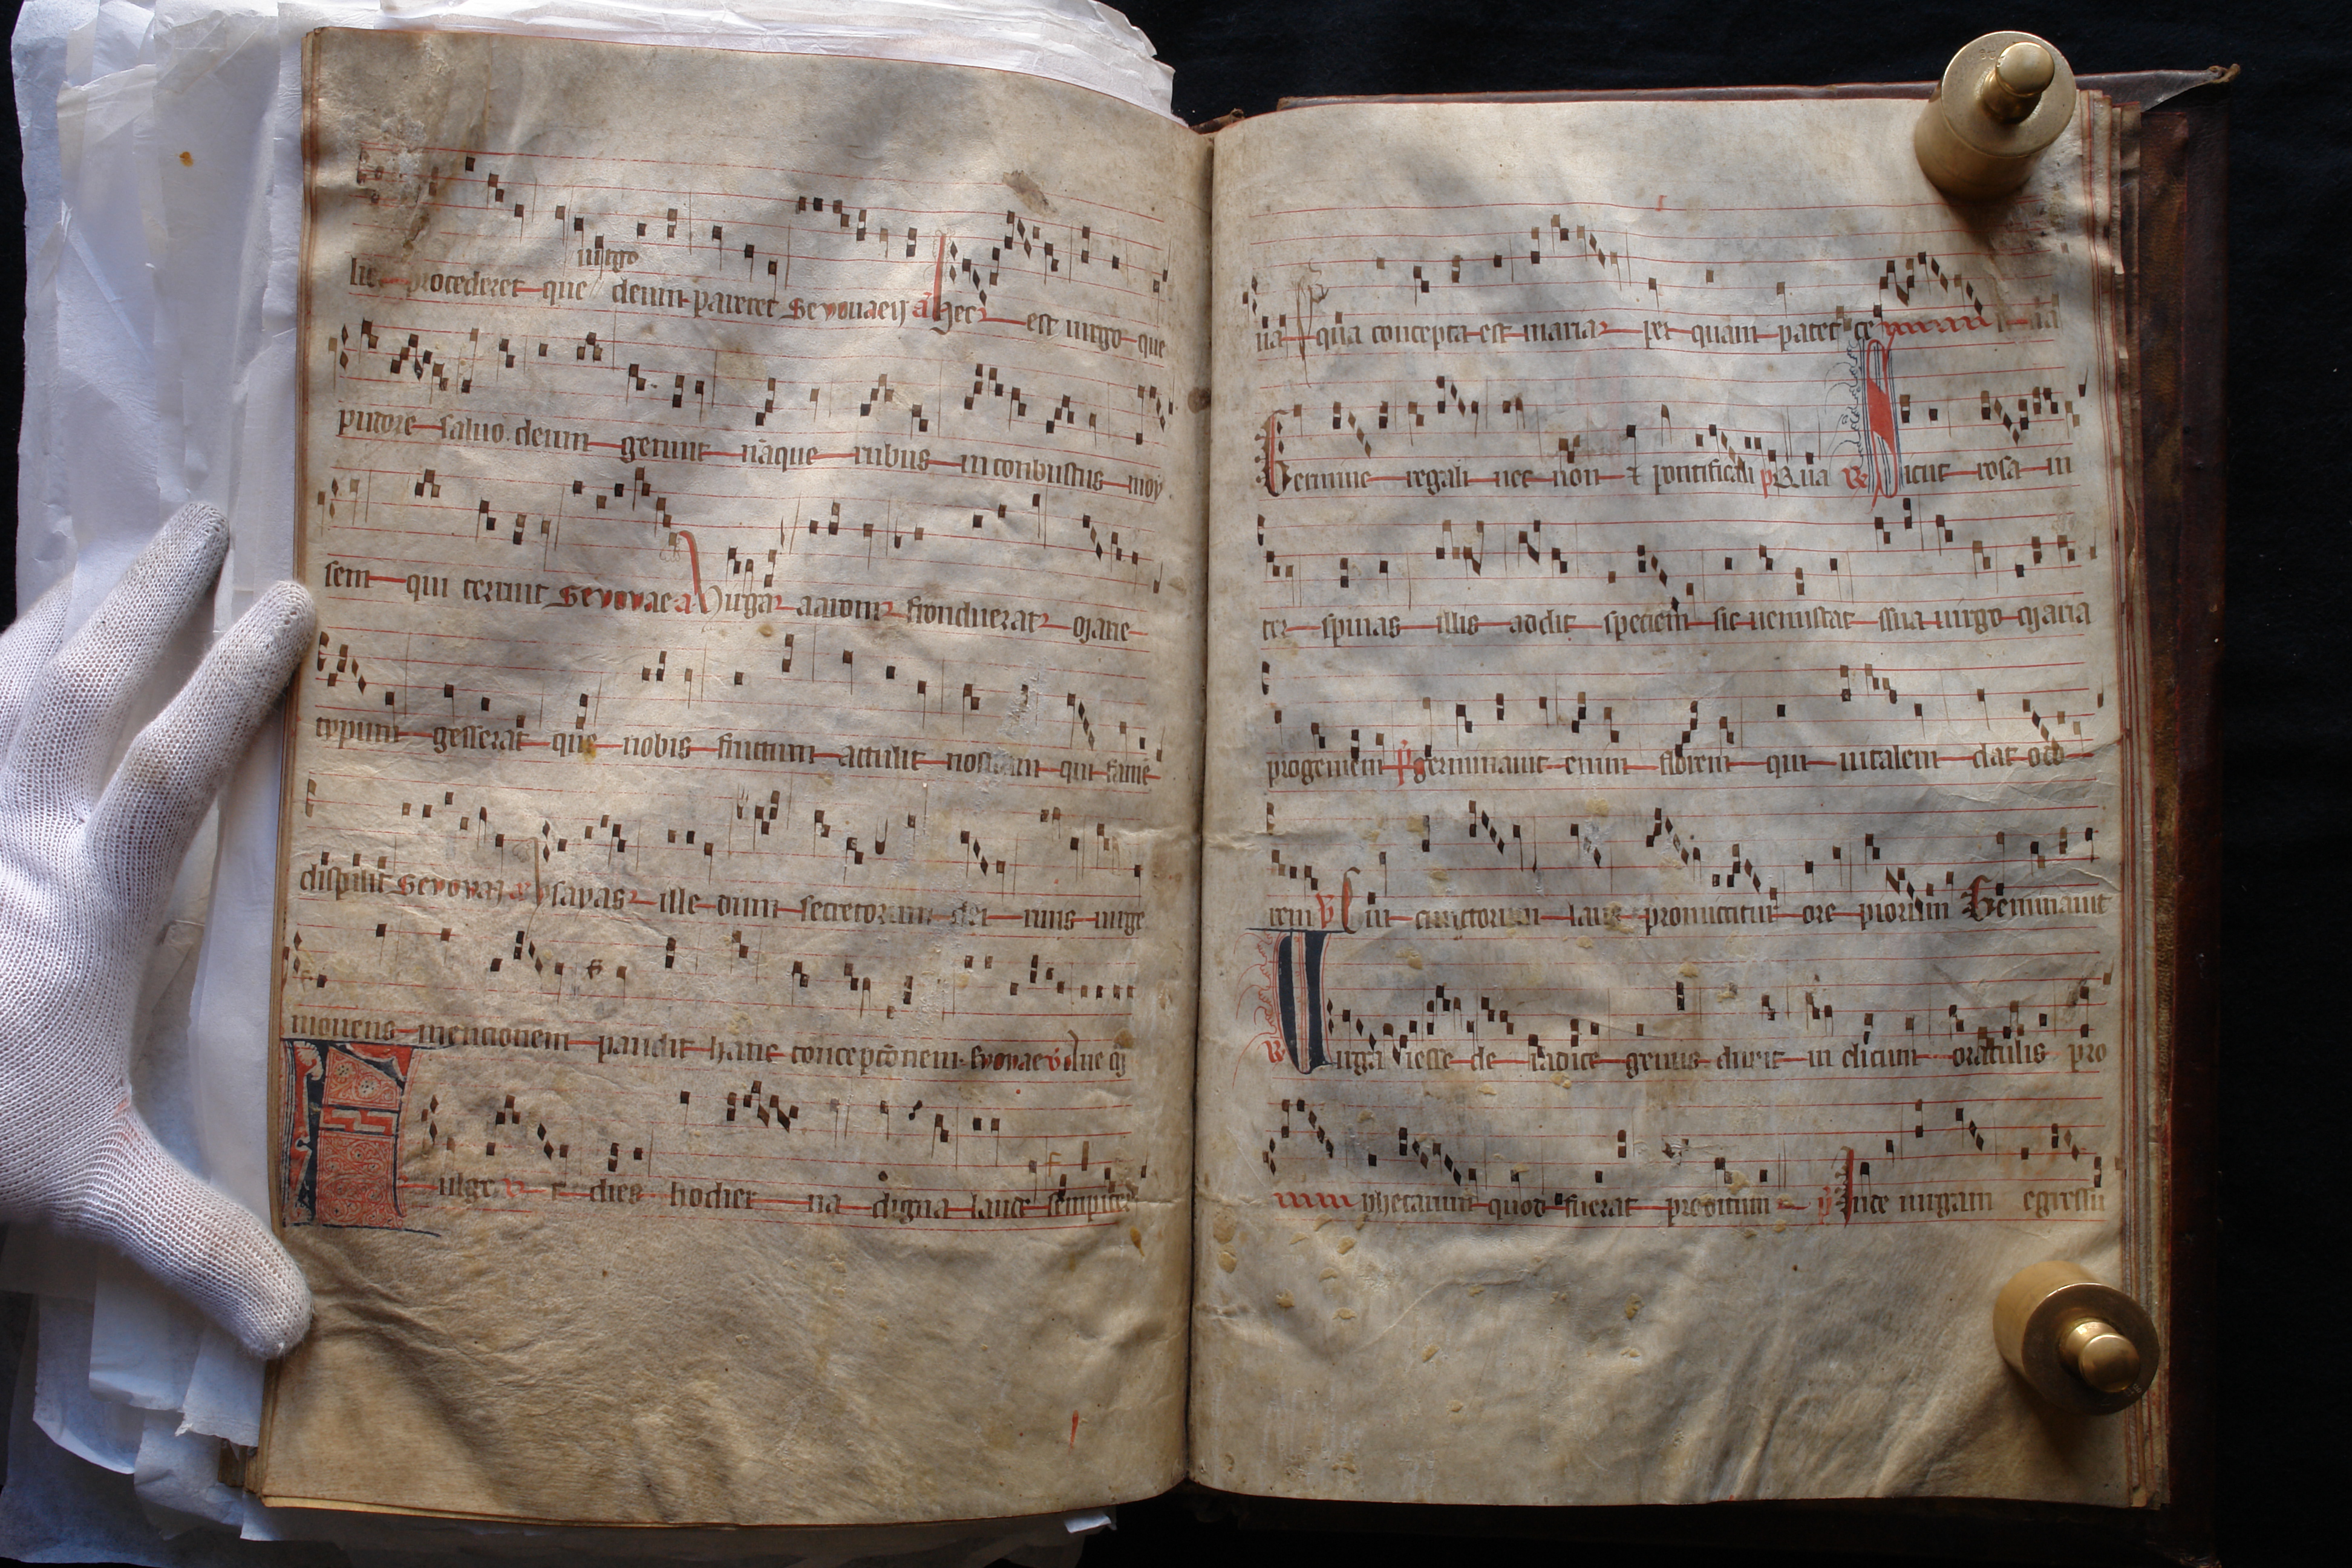 virgo
lit procederet que deum pareret Seuouaeu a Hec est uirgo que
pudore saluo deum genuit nãque rubus inconbustus moy
sem qui terruit Seuouae a Uirga aaron fronduerat marie
typum gesserat que nobis fructum attulit nostram qui famẽ
dispulit Seuouae a ysayas ille dum secretorum dei ruis uirge
mouens mencionem pandit hanc concepc̃onem euouae
Fulget dies hodierna digna laude sempiter
na ĩ qua concepta est maria per quam patet ce
Germine regali nec non ⁊ pontificali p Qua R Sicut rosa in
ter spinas illis addit speciem sic uenustat suã uirgo maria
progeniem germinauit enim florem qui uitalem dat odo
rem V In cunctorum laus promittitur ore piorum Germinauit
R Uirga iesse de radice genus durit in clitum oraculis pro
phetarum quod fuerat preditum Ince uirgam egressu